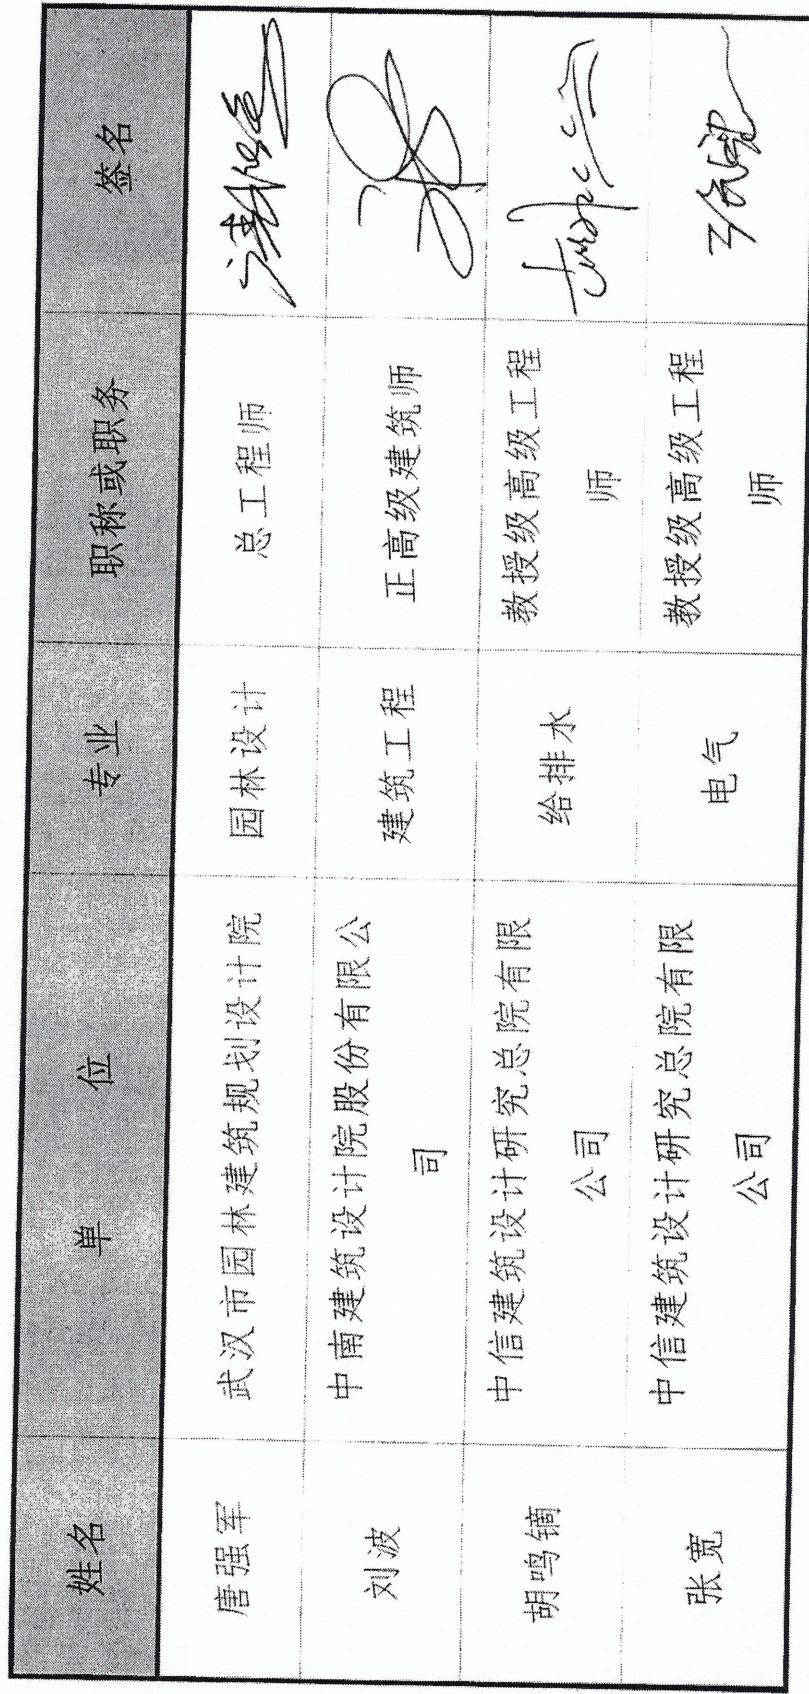 姓名 单 位 专业 职称或职务 签名
唐强军 武汉市园林建筑规划设计院 园林设计 总工程师
刘波 中南建筑设计院股份有限公
司 建筑工程 正高级建筑师
胡鸣镝 中信建筑设计研究总院有限
公司 给排水 教授级高级工程
师
张宽 中信建筑设计研究总院有限
公司 电气 教授级高级工程
师